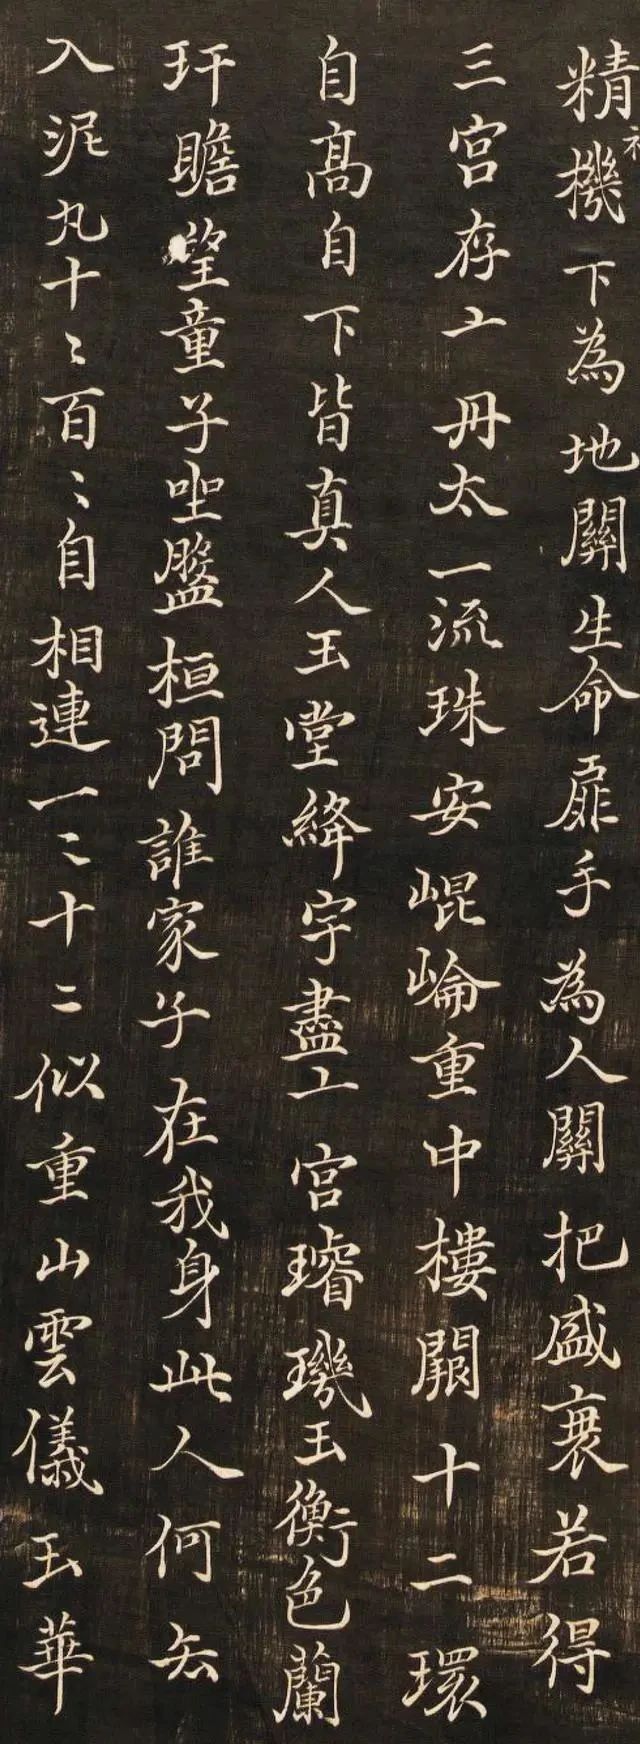 精機不下為地關生命扉手為人關把盛衰若得
三宮存亠丹太一流珠安崐崘重中樓閣十二環
自高自下皆真人玉堂絳宇盡亠宮璿璣玉衡色蘭
玕瞻望童子坐盤桓問誰家子在我身此人何去
入泥丸十〻百〻自相連一〻十二似重山雲儀玉華